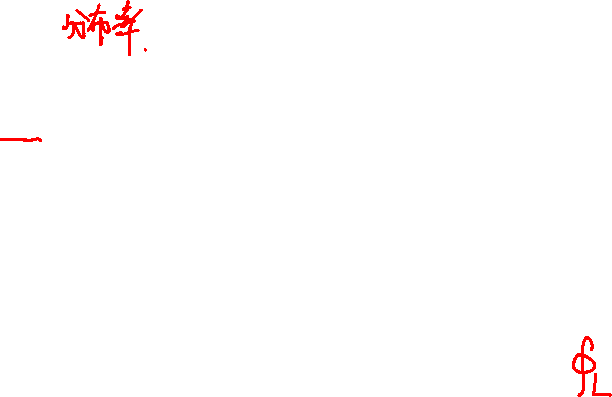 分布率.
∮L